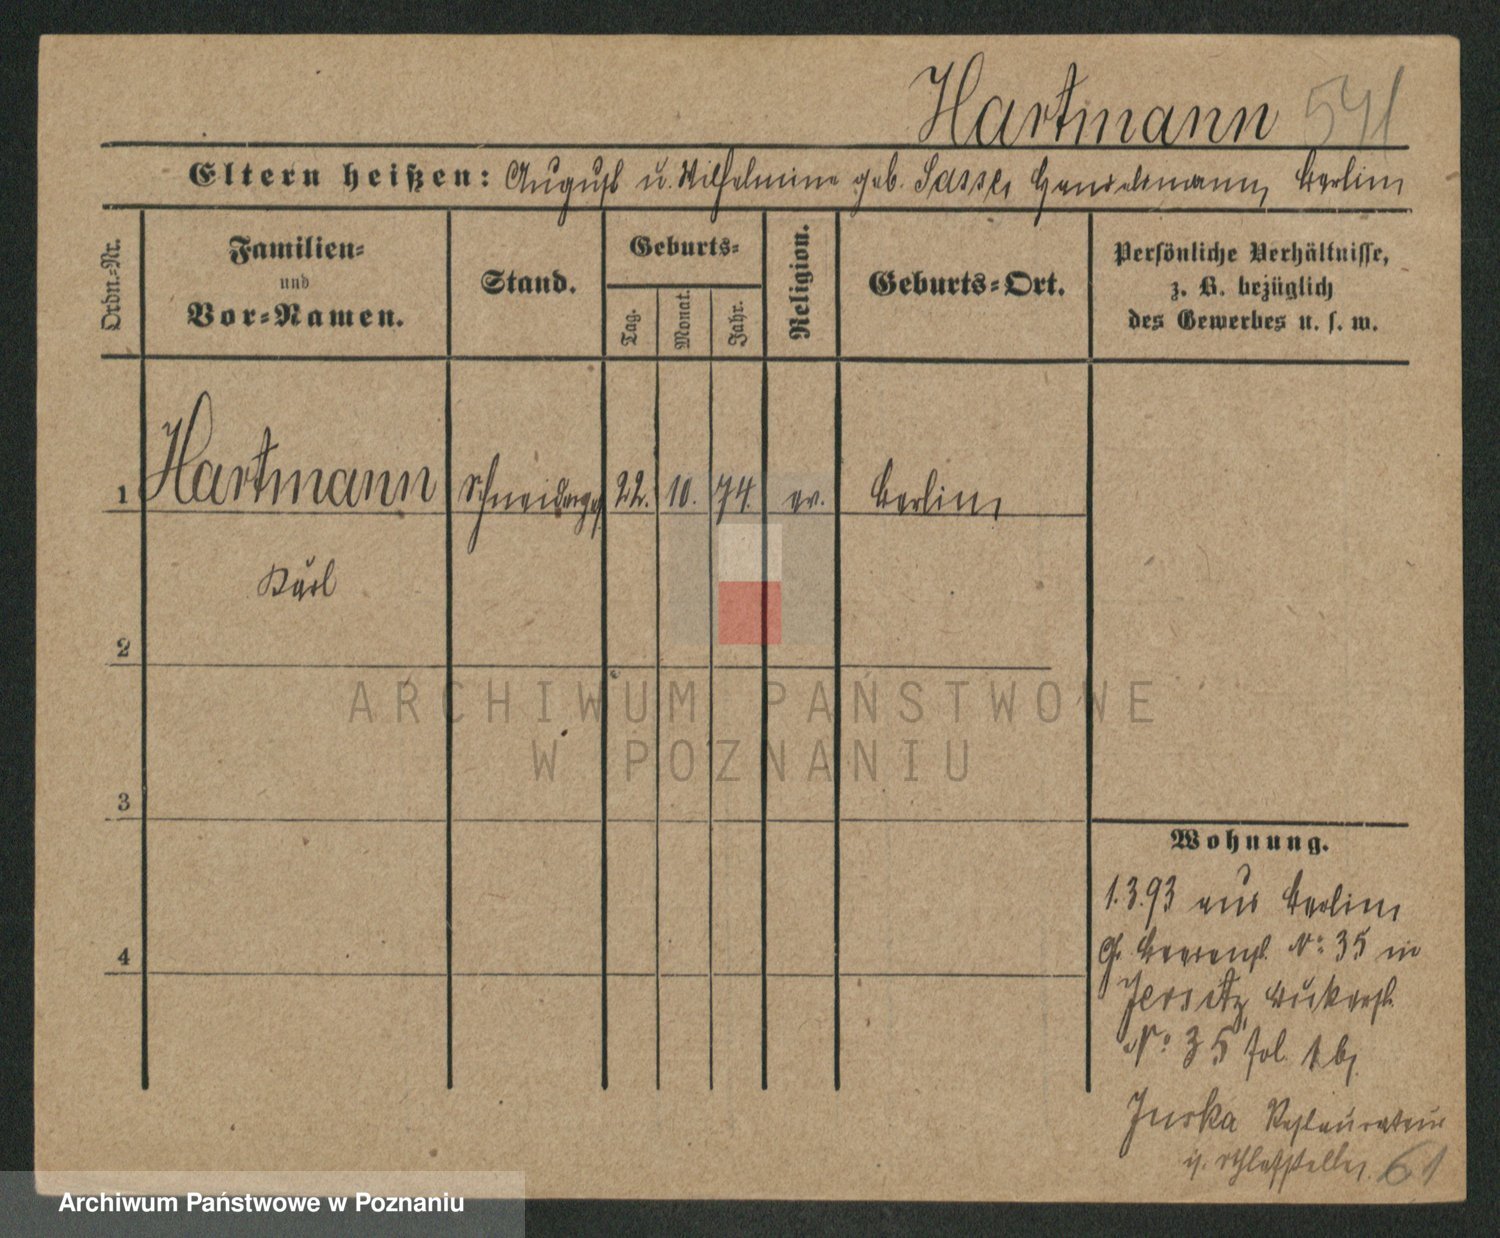 Hartmann 541
Eltern heißen: August u. Wilhelmine geb. Sasse, Handelsmann, Berlin
Ordn.-Nr.
Familien-
und
Vor-Namen.
Stand.
Geburts-
Tag.
Monat.
Jahr.
Religion.
Geburts-Ort.
Persönliche Verhältnisse,
z. B. bezüglich
des Gewerbes u. s. w.
1 Hartmann Schneiderges. 22. 10. 74. ev. Berlin
Karl
2
3
4
ARCHIWUM PAŃSTWOWE
W POZNANIU
Wohnung.
1.3.93 aus Berlin
No 35 in
Jersitz, Bukerst.
No 35 fol. 1 b,
Juska Restaurateur
i. Schlafstelle, 61
Archiwum Państwowe w Poznaniu